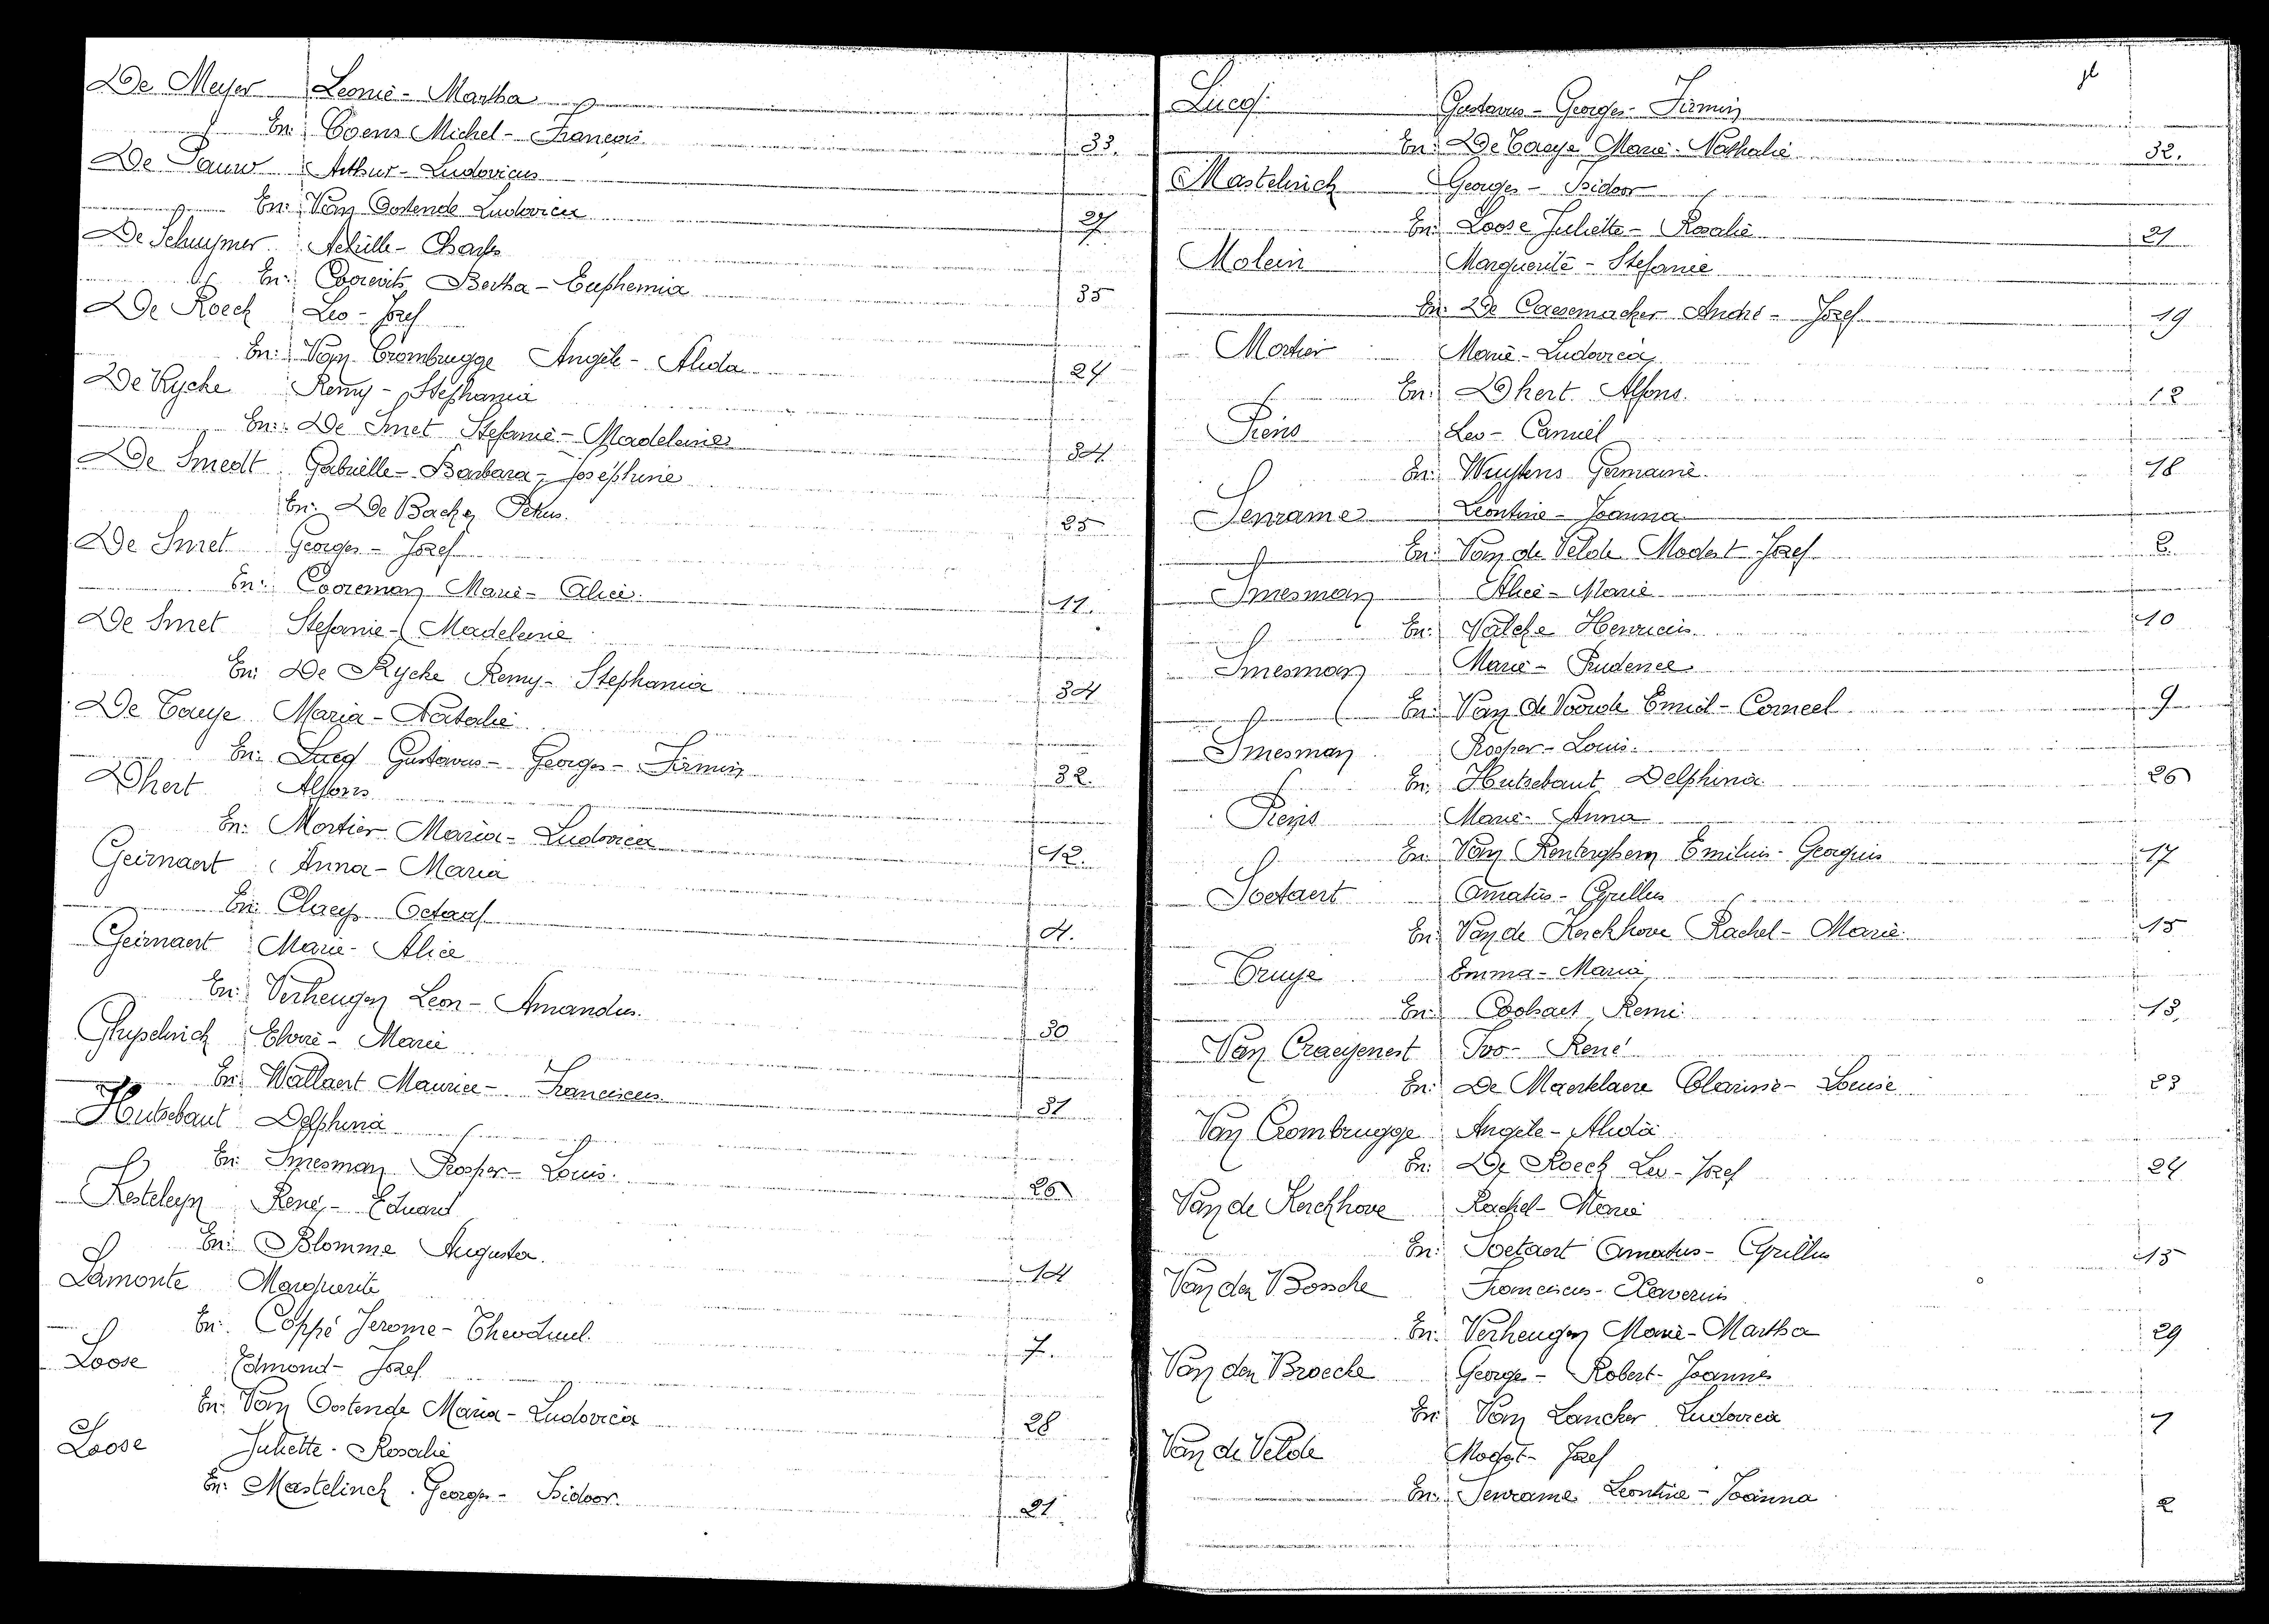 De Meyer Leonie - Martha
En: Coens Michel - François. 33.
De Pauw Arthur - Ludovicus
En: Van Oostende Ludovica 27
De Schuymer Achille - Charles
En: Coorevits Bertha - Euphemia 35
De Roeck Leo - Jozef
En: Van Crombrugge Angèle - Alida 24
De Rycke Remy - Stephania
En: De Smet Stefanie - Madeleine 34
De Smedt Gabrielle - Barbara - Joséphine
En: De Backer Petrus. 25
De Smet Georges - Jozef
En: Cooreman Marie - Alice. 11.
De Smet Stefanie - Madeleine
En: De Rycke Remy - Stephania 34
De Taeye Maria - Natalie
En: Lucq Gustavus - Georges - Firmin 32.
Dhert Alfons
En: Mortier Maria - Ludovica 12.
Geirnaert Anna - Maria
En: Claeys Octaaf 4.
Geirnaert Marie - Alice
En: Verheugen Leon - Amandus. 30
Ghyselinck Elvire - Marie
En: Wallaert Maurice - Franciscus. 31
Hutsebaut Delphina
En: Smesman Prosper - Louis. 26
Kesteleyn René - Eduard
En: Blomme Augusta. 14
Lamonte Marguerite
En: Coppé Jerome - 7.
Loose Edmond - Jozef
En: Van Oostende Maria - Ludovica 28
Loose Juliette - Rosalie
En: Mastelinck Georges - Isidoor. 21.
Lucq. Gustavus - Georges - Firmin
En: De Taeye Marie - Nathalie 32.
Mastelinck Georges - Isidoor
En: Loose Juliette - Rosalie 21
Molein Marguerite - Stefanie
En: De Caesemaeker André - Jozef 19
Mortier Marie - Ludovica
En: Dhert Alfons. 12
Piens Leo - Camiel
En: Wuytens Germaine. 18
Senrame Leontine - Joanna
En: Van de Velde Modest - Jozef 2.
Smesman Alice - Marie
En: Valcke Henricus. 10
Smesman Marie - Prudence
En: Van de Voorde Emiel - Corneel 9
Smesman Prosper - Louis.
En: Hutsebaut Delphina 26
Piens Marie - Anna
En: Van Renterghem Emilius - Georgius 17
Soetaert Amatus - Cyrillus
En: Van de Kerckhove Rachel - Marie. 15
Truye Emma - Maria
En: Coobaert Remi. 13.
Van Craeyenest Ivo - René
En: De Maerelaere Clarisse - Louise 23
Van Crombrugge Angèle - Alida
En: De Roeck Leo - Jozef 24
Van de Kerckhove Rachel - Marie
En: Soetaert Amatus - Cyrillus 15
Van den Bossche Franciscus - Xaverius
En: Verheugen Marie - Martha 29
Van den Broecke George - Robert - Joannes
En: Van Lancker Ludovica 1
Van de Velde Modest - Jozef
En: Senrame Leontine - Joanna 2